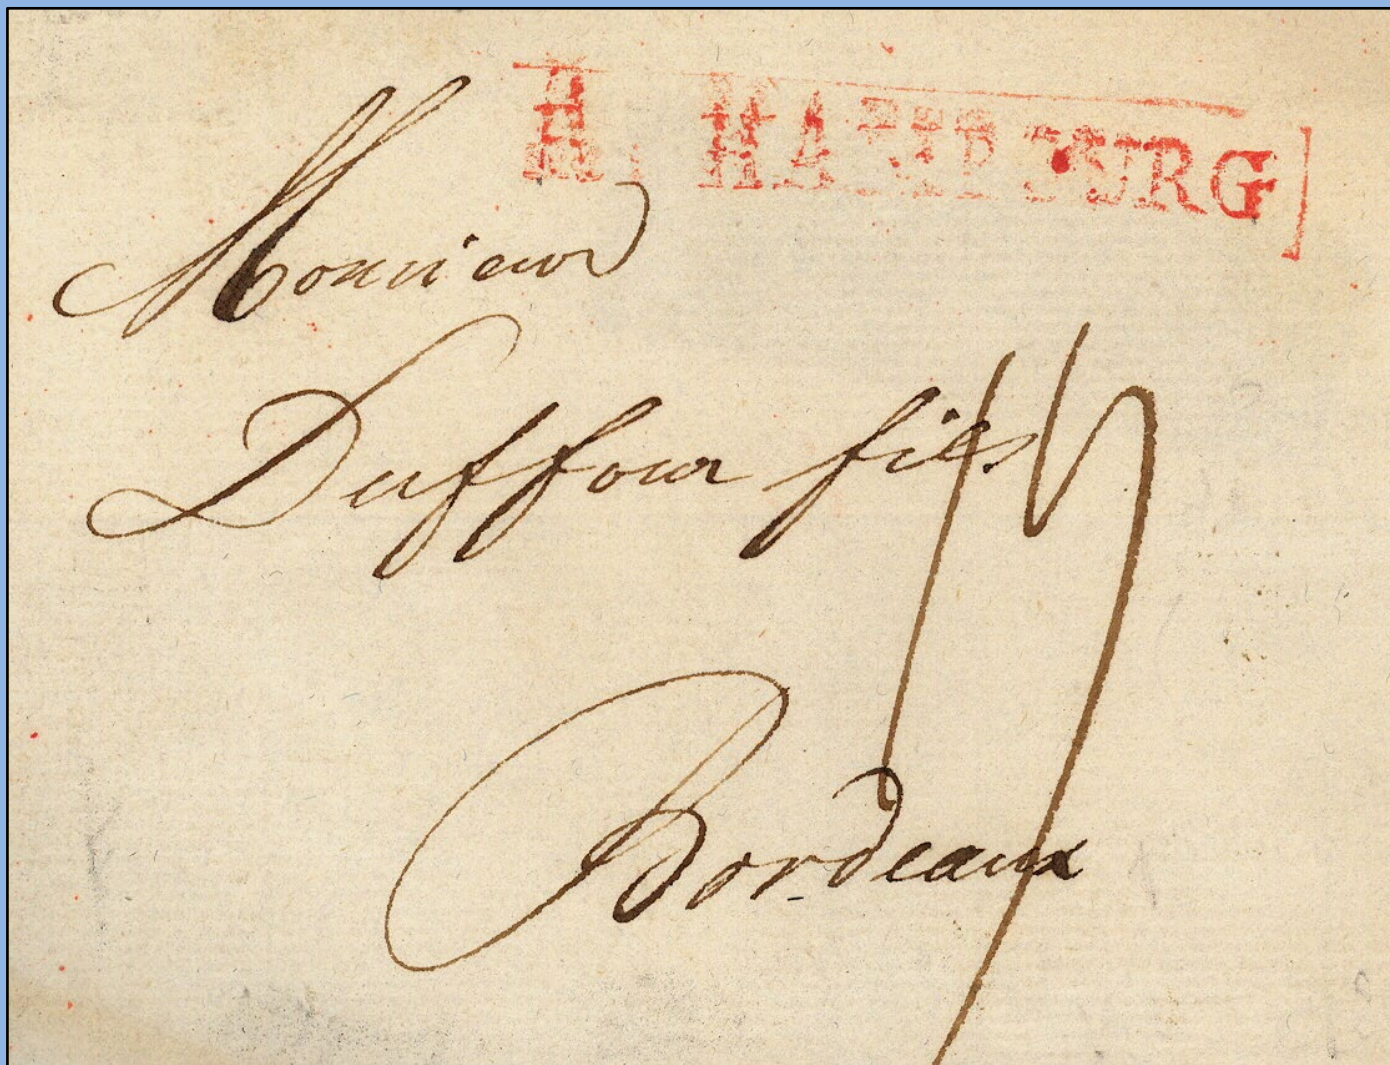 HAMBOURG
Monsieur
Duffour fils
Bordeaux